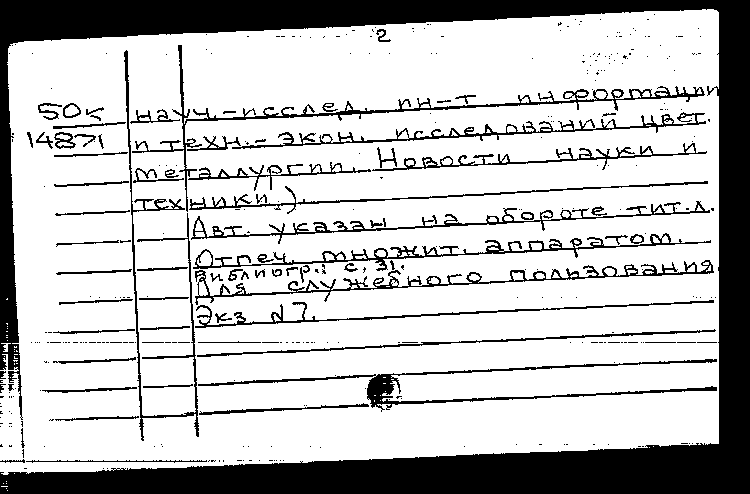 2
50к науч.-исслед. ин-т информации
14871 и техн.- экон. исследований цвет.
металлургии. Новости науки и
техники.).
Авт. указан на обороте тит.л.
Отпеч. множит. аппаратом.
Библиогр.: с. 31.
Для служебного пользования
Экз. N7.